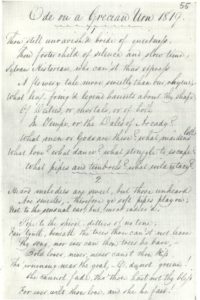 55
Ode on a Grecian Urn 1819.
Thou still unravish'd bride of quietness,
Thou foster child of silence and slow time,
Sylvan Historian, who can'st thus express
A flowery tale more sweetly than our rhyme:
What leaf-fring'd legend haunts about thy shape
Of Deities or mortals, or of both,
In Tempe or the Dales of Arcady?
What men or Gods are these? What maidens loth?
What love? what dance? what struggle to escape?
What pipes and timbrels? what wild extacy?
2
Heard melodies are sweet, but those unheard
Are sweeter, therefore ye soft pipes play on;
Not to the sensual ear, but, more endear'd,
Pipe to the spirit ditties of no tone:
Fair Youth, beneath the trees thou can'st not leave
Thy song, nor ever can those trees be bare,
Bold lover, never never canst thou kiss
Though winning near the goal, — O, do not grieve!
She cannot fade, tho' thou hast not thy bliss
For ever wilt thou love, and she be fair!